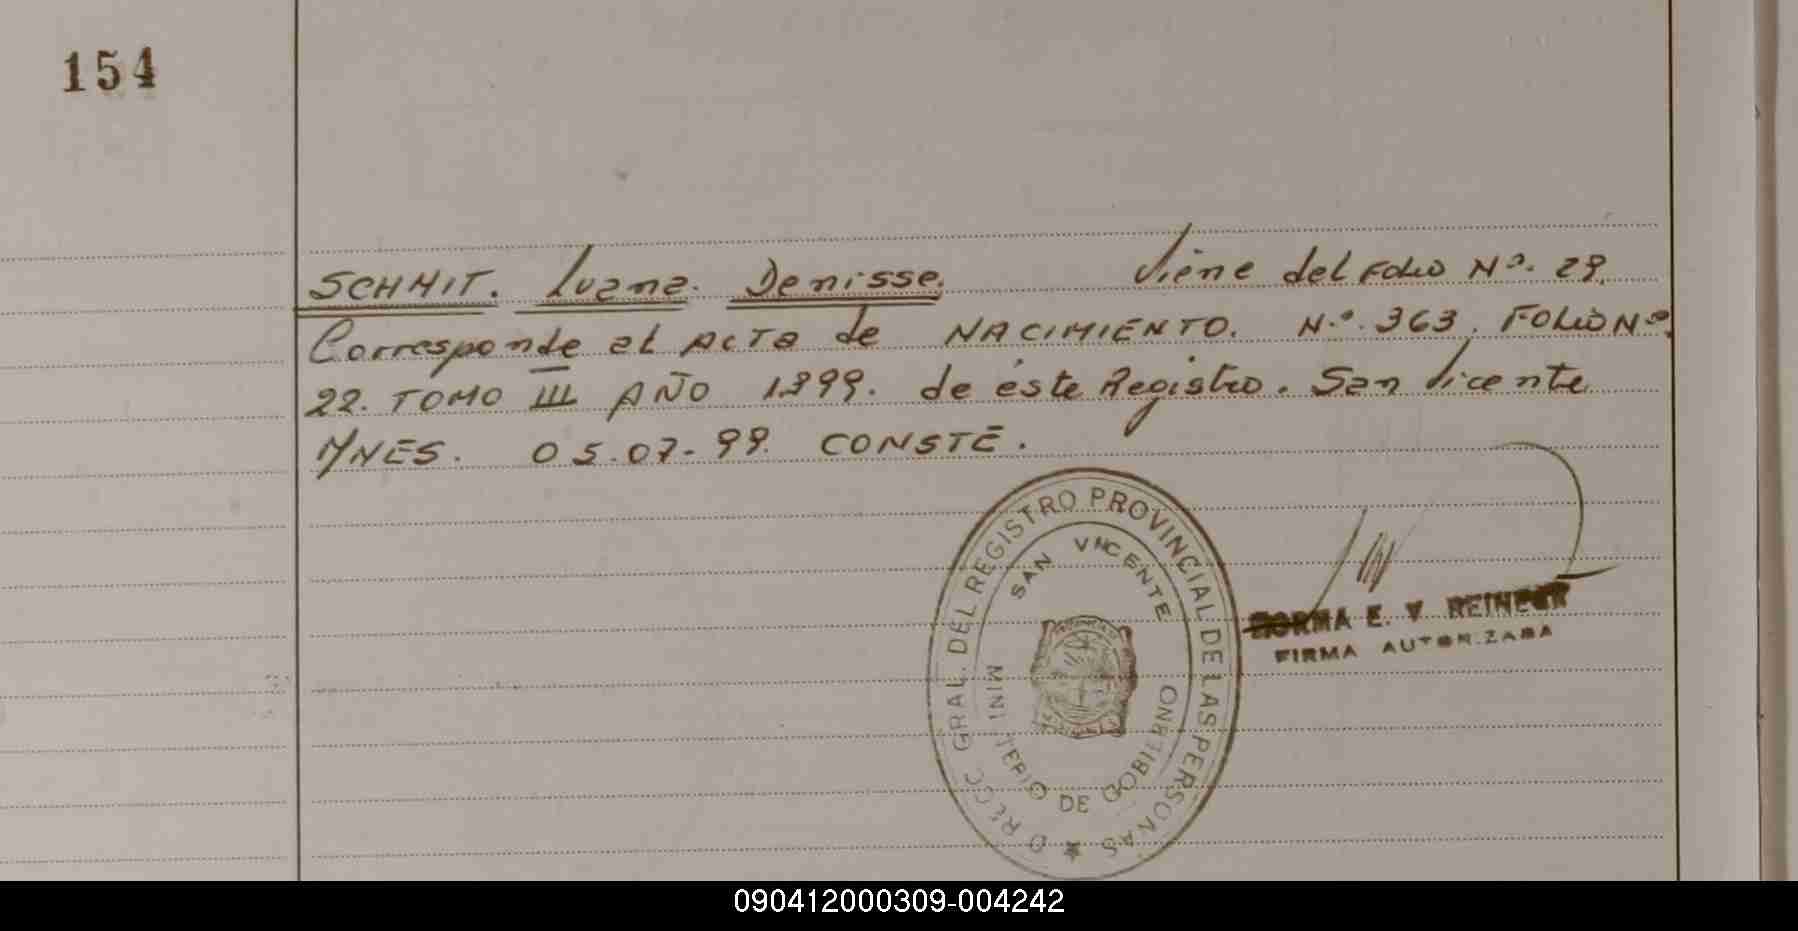 154
SCHMIT. Luana. Denisse. Viene del Folio Nº. 29.
Corresponde al ACTA de NACIMIENTO. N.º. 363. FOLIO Nº.
22. TOMO III AÑO 1999. de éste Registro. San Vicente
MNES. 05.07-99. CONSTE.
D RECC GRAL. DEL REGISTRO PROVINCIAL DE LAS PERSONAS
SAN VICENTE
MINI TERIO DE GOBIERNO
NORMA E. V.
FIRMA AUTORIZADA
090412000309-004242